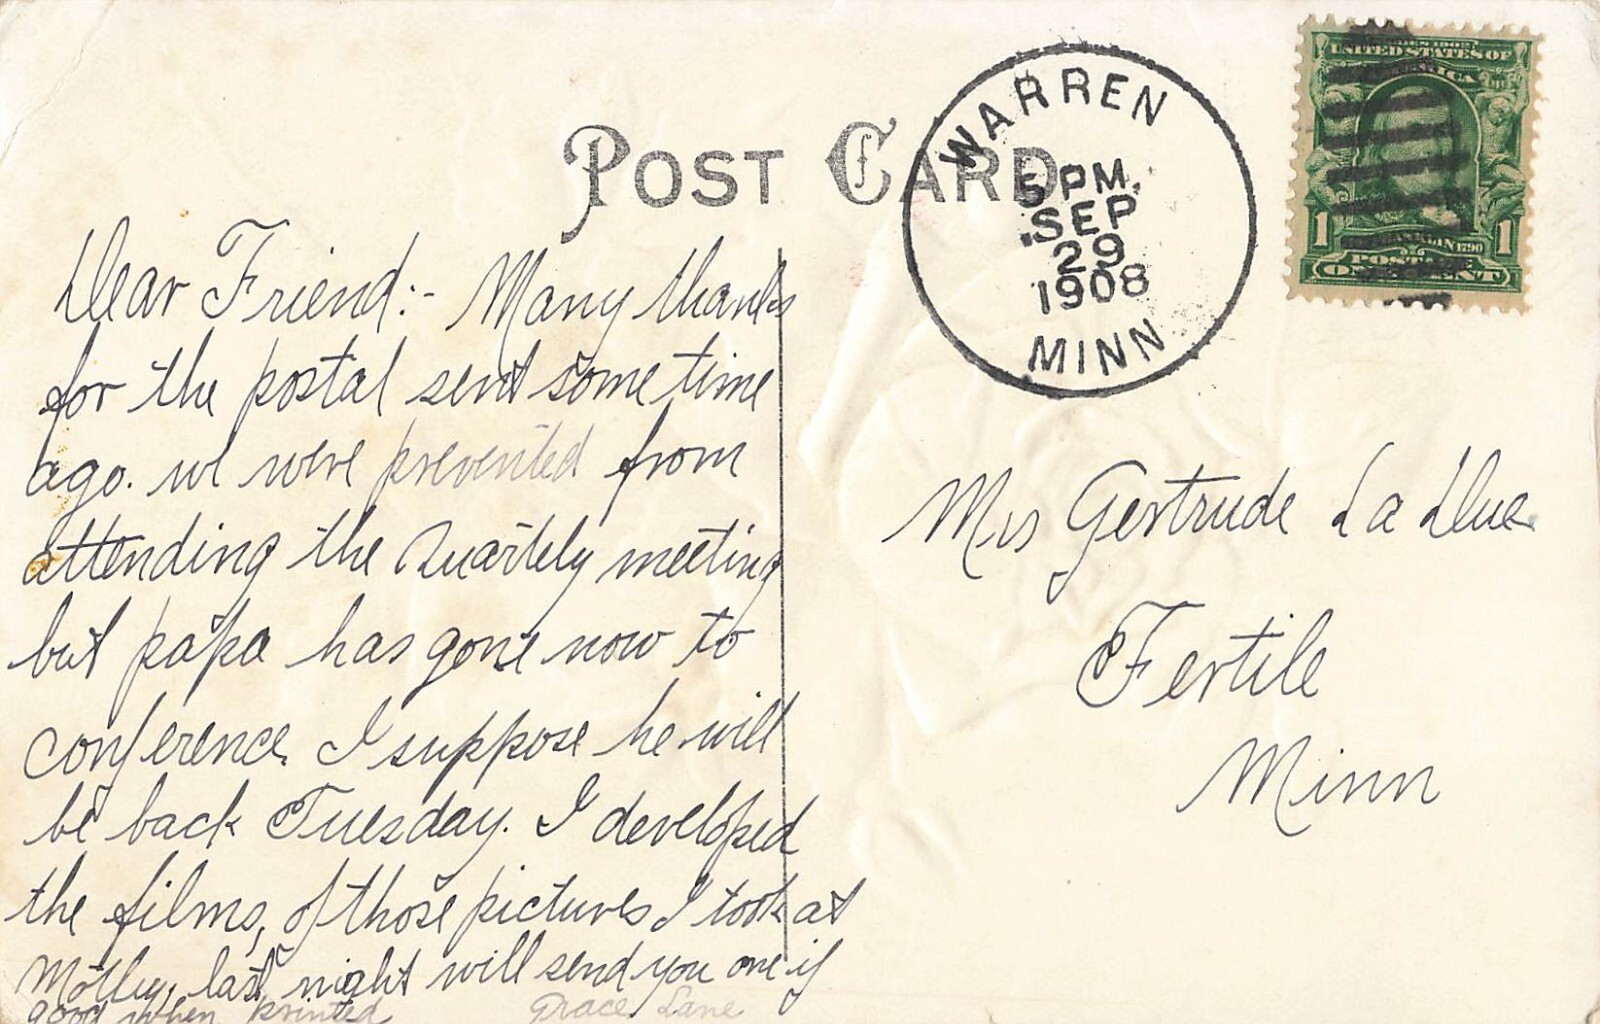 POST CARD
WARREN
5 PM.
SEP
29
1908
MINN
UNITED STATES OF
AMERICA
1 FRANKLIN 1790 1
POSTAGE
ONE CENT
Dear Friend:- Many thanks
for the postal sent some time
ago. we were prevented from
attending the Quartely meeting
but papa has gone now to
conference. I suppose he will
be back Tuesday. I developed
the films, of those pictures I took at
Motley, last night will send you one if
good when printed
Grace Lane
Mrs Gertrude La Due
Fertile
Minn